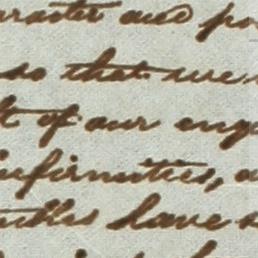 aracter and po
so that we
t of our enge
infirmities, a
have